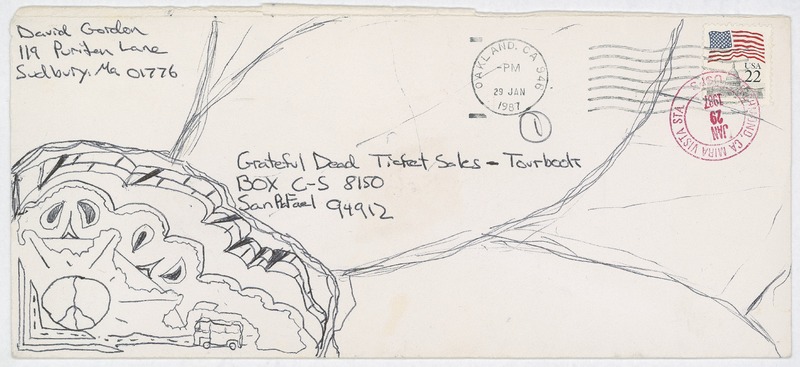 David Gordon
119 Puritan Lane
Sudbury, Ma 01776
OAKLAND, CA 946
-PM
29 JAN
1987
1
USA
22
RICHMOND, CA MIRA VISTA STA.
JAN
29
1987
USPS
Grateful Dead Ticket Sales - Tourbook
BOX C-S 8150
San Rafael 94912